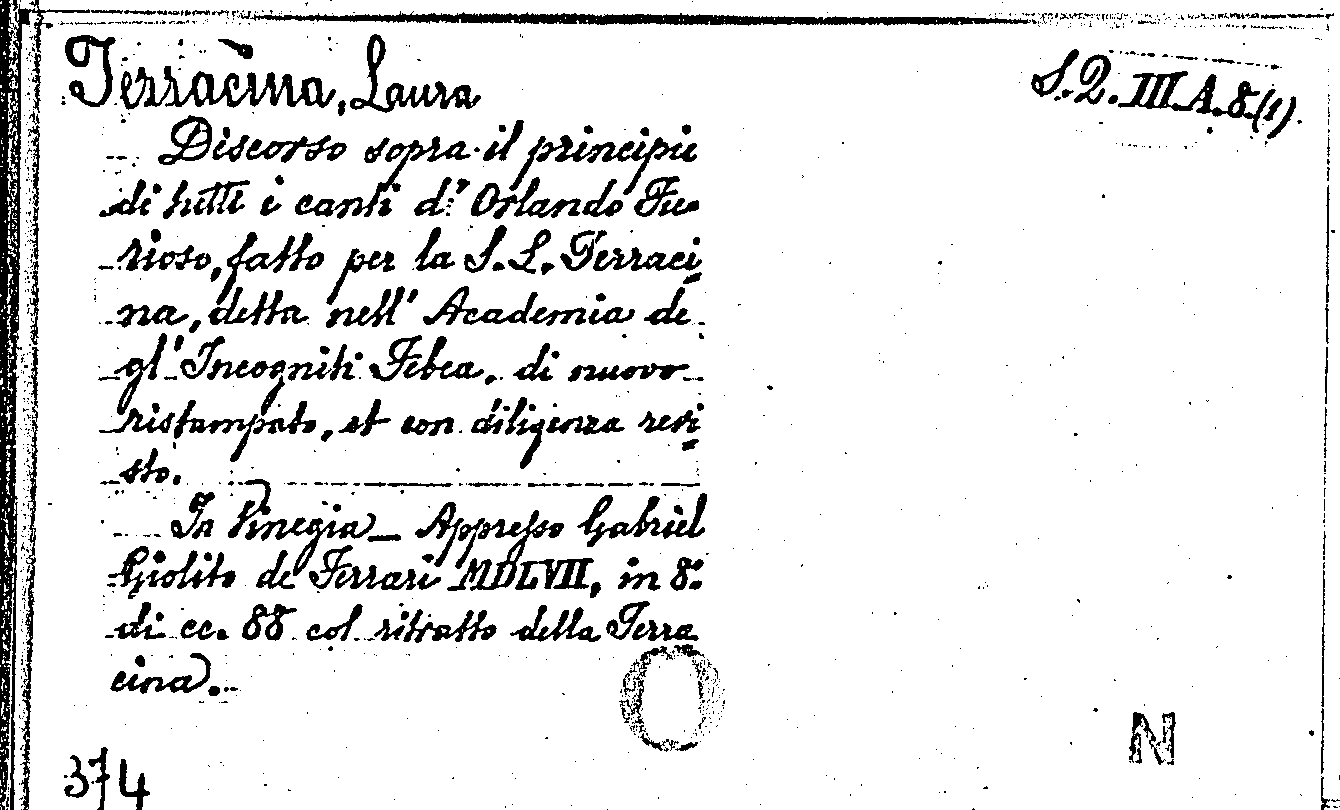 Terracina, Laura
S.Q.III.A.8.(1).
Discorso sopra il principio
di tutti i canti d' Orlando Fu-
rioso, fatto per la S. L. Terraci-
na, detta nell' Academia de
gl' Incogniti Febea, di nuovo
ristampato, et con diligenza revi-
sto.
In Vinegia - Appresso Gabriel
Giolito de Ferrari MDLVII, in 8°
di cc. 88 col ritratto della Terra
cina.
O
N
374